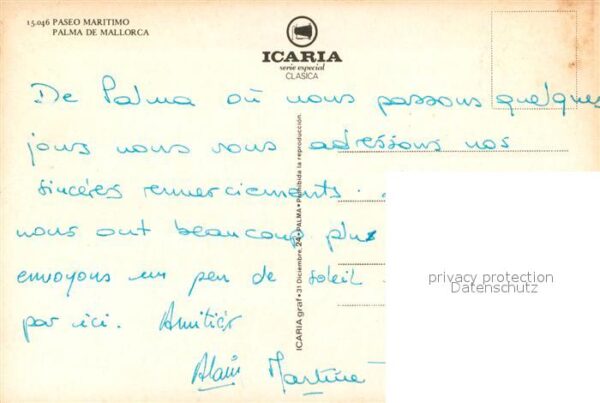 15.046 PASEO MARITIMO
PALMA DE MALLORCA
ICARIA
serie especial
CLASICA
De Palma où nous passons quelques
jours nous vous adressons nos
sincères remerciements.
nous ont beaucoup plu
envoyons un peu de soleil
par ici. Amitiés
Alain Martine
ICARIA graf • 31 Diciembre, 24 • PALMA • Prohibida la reproducción.
privacy protection
Datenschutz